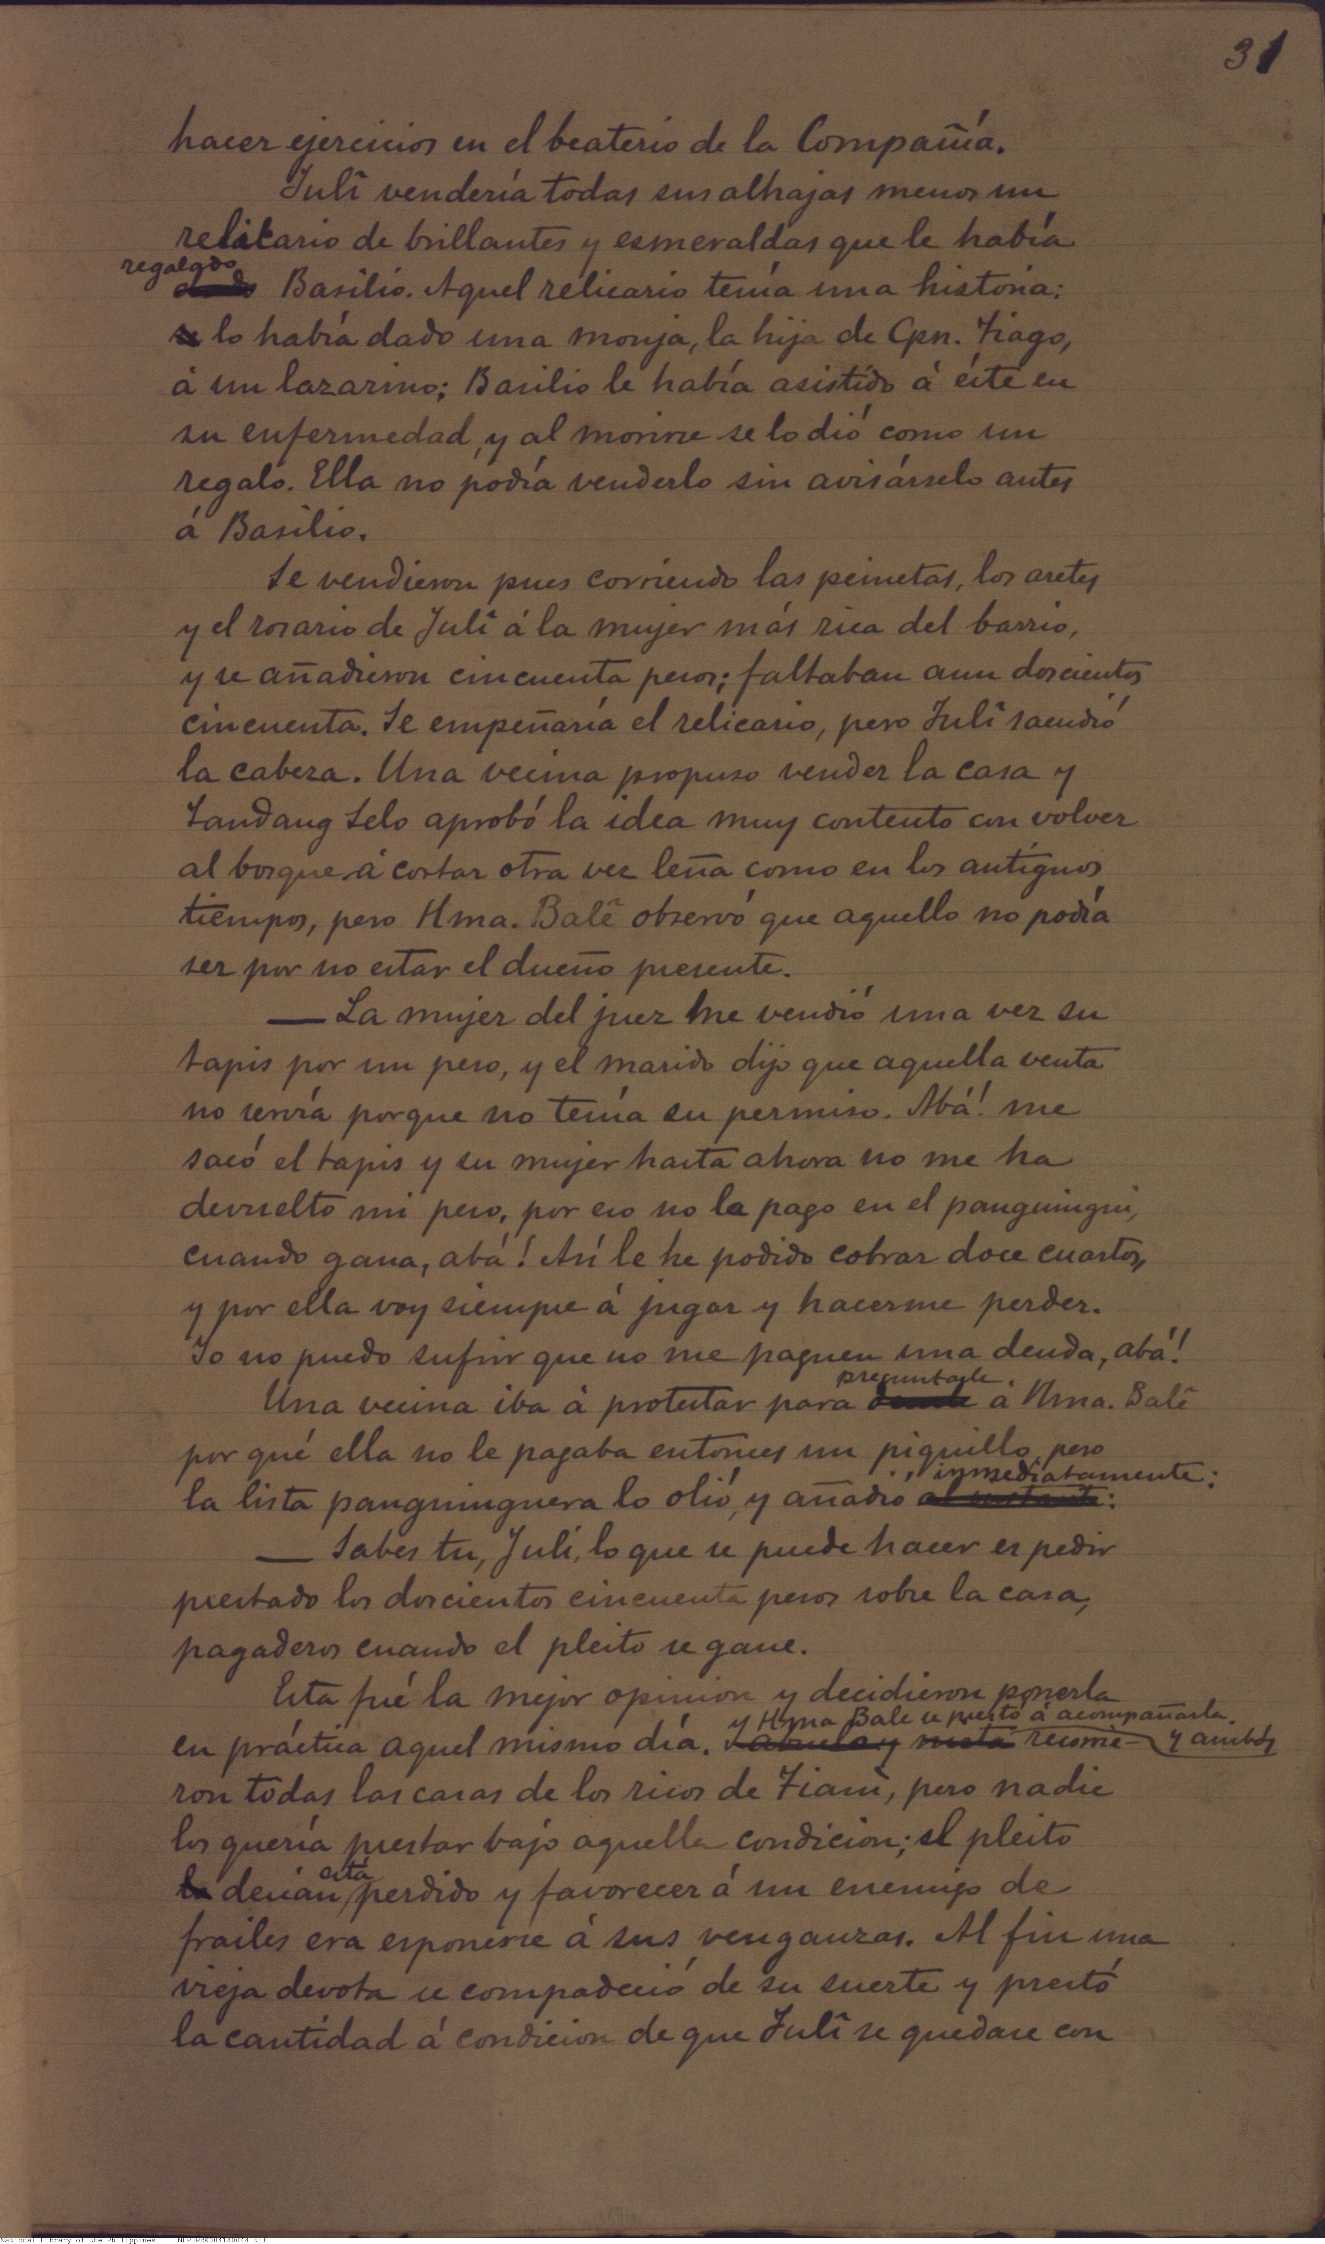 31
hacer ejercicios en el beaterio de la Compañía.
Julî vendería todas sus alhajas menos un
relicario de brillantes y esmeraldas que le había
regalado
dado Basilio. Aquel relicario tenía una historia:
se lo había dado una monja, la hija de Cpn. Tiago,
á un lazarino; Basilio le había asistido á éste en
su enfermedad, y al morirse se lo dió como un
regalo. Ella no podía venderlo sin avisárselo antes
á Basilio.
Se vendieron pues corriendo las peinetas, los aretes
y el rosario de Julî á la mujer más rica del barrio,
y se añadieron cincuenta pesos; faltaban aun doscientos
cincuenta. Se empeñaría el relicario, pero Julî sacudió
la cabeza. Una vecina propuso vender la casa y
Tandang Selo aprobó la idea muy contento con volver
al bosque á cortar otra vez leña como en los antíguos
tiempos, pero Hma. Balê observó que aquello no podía
ser por no estar el dueño presente.
— La mujer del juez me vendió una vez su
tapis por un peso, y el marido dijo que aquella venta
no servía porque no tenía su permiso. Abá! me
sacó el tapis y su mujer hasta ahora no me ha
devuelto mi peso, por eso no la pago en el panguingui,
cuando gana, abá! Así le he podido cobrar doce cuartos,
y por ella voy siempre á jugar y hacerme perder.
Yo no puedo sufrir que no me paguen una deuda, abá!
preguntarle
Una vecina iba á protestar para á Hma. Balê
por qué ella no le pagaba entonces un piquillo, pero
inmediatamente:
la lista panguinguera lo olió, y añadió al instante:
— Sabes tu, Julî, lo que se puede hacer es pedir
prestado los doscientos cincuenta pesos sobre la casa,
pagaderos cuando el pleito se gane.
Esta fué la mejor opinion y decidieron ponerla
y Hma Balê se prestó á acompañarla.
en práctica aquel mismo día. Abuelo y nieta recorrie- y ambos
ron todas las casas de los ricos de Tianî, pero nadie
los quería prestar bajo aquella condicion; el pleito
está
decían perdido y favorecer á un enemigo de
frailes era esponerse á sus venganzas. Al fin una
vieja devota se compadeció de su suerte y prestó
la cantidad á condicion de que Julî se quedase con